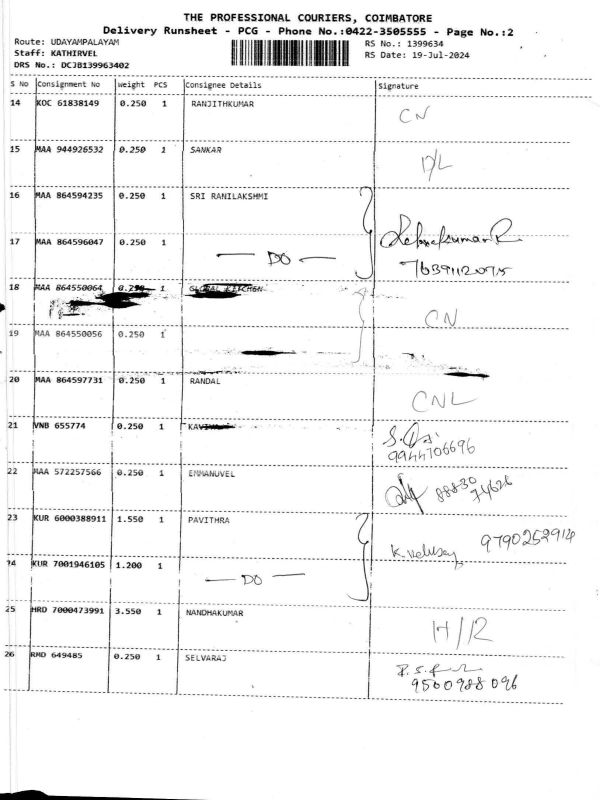 THE PROFESSIONAL COURIERS, COIMBATORE
Delivery Runsheet - PCG - Phone No.:0422-3505555 - Page No.:2
Route: UDAYAMPALAYAM
RS No.: 1399634
Staff: KATHIRVEL
RS Date: 19-Jul-2024
DRS No.: DCJB139963402
S No Consignment No Weight PCS Consignee Details Signature
14 KOC 61838149 0.250 1 RANJITHKUMAR CN
15 MAA 944926532 0.250 1 SANKAR D/L
16 MAA 864594235 0.250 1 SRI RANILAKSHMI
17 MAA 864596047 0.250 1 — DO — 7639112075
18 MAA 864550064 0.250 1 GLOBAL KITCHEN CN
19 MAA 864550056 0.250 1
20 MAA 864597731 0.250 1 RANDAL CNL
21 VNB 655774 0.250 1 9944706696
22 MAA 572257566 0.250 1 EMMANUVEL 88830 74626
23 KUR 6000388911 1.550 1 PAVITHRA 9790252914
24 KUR 7001946105 1.200 1 — DO —
25 HRD 7000473991 3.550 1 NANDHAKUMAR H/R
26 RMD 649485 0.250 1 SELVARAJ 9500988096